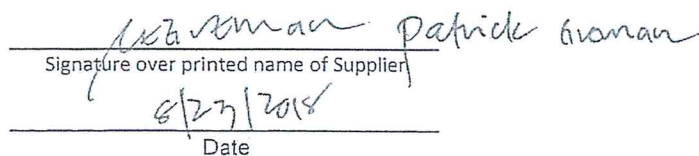 Patrick
Signature over printed name of Supplier
8/23/2018
Date